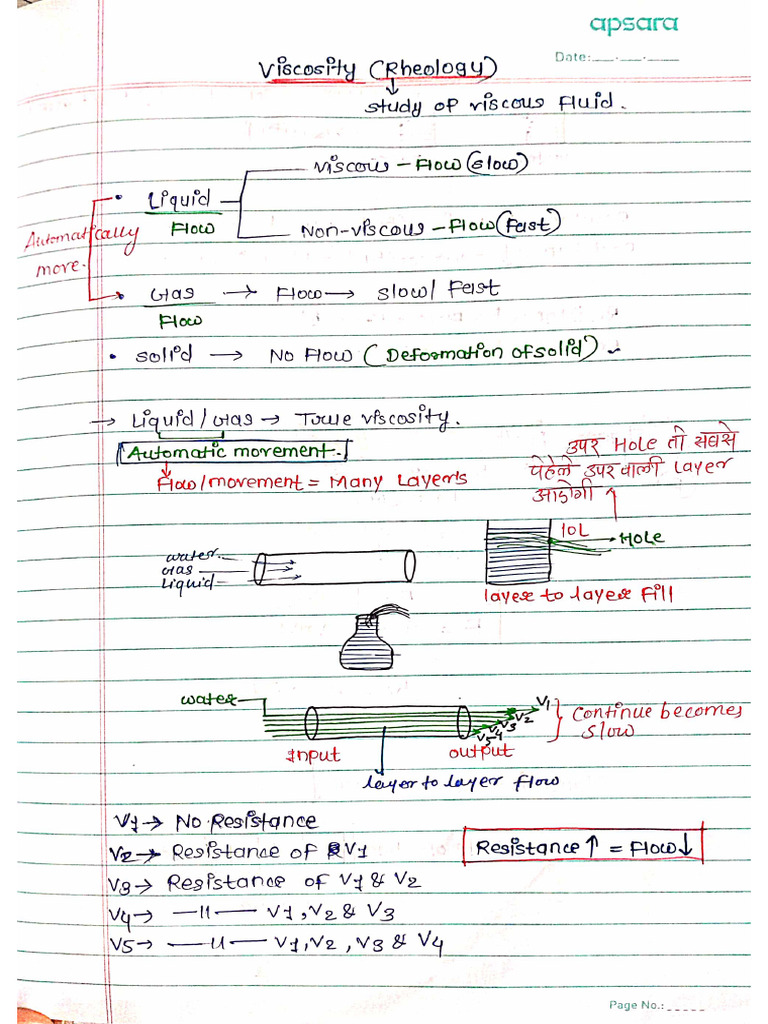 apsara
Date:__.__.____
Viscosity (Rheology)
study of viscous Fluid.
Viscous - Flow (slow)
• Liquid
Flow
Non-viscous - Flow (Fast)
Automatically
move.
• Gas → Flow → slow/ Fast
Flow
• Solid → No Flow (Deformation of solid)
→ Liquid/Gas → True viscosity.
Automatic movement.
Flow/movement = Many Layers
उपर Hole तो सबसे
पेहेले उपर वाली Layer
आऐगी
water
Gas
Liquid
10L
Hole
layer to layer Fill
water
V1
V2
V3
V4
V5
Continue becomes
slow
Input
output
layer to layer flow
V1 → No Resistance
V2 → Resistance of V1
Resistance ↑ = Flow ↓
V3 → Resistance of V1 & V2
V4 → —11— V1, V2 & V3
V5 → —11— V1, V2, V3 & V4
Page No.:_____